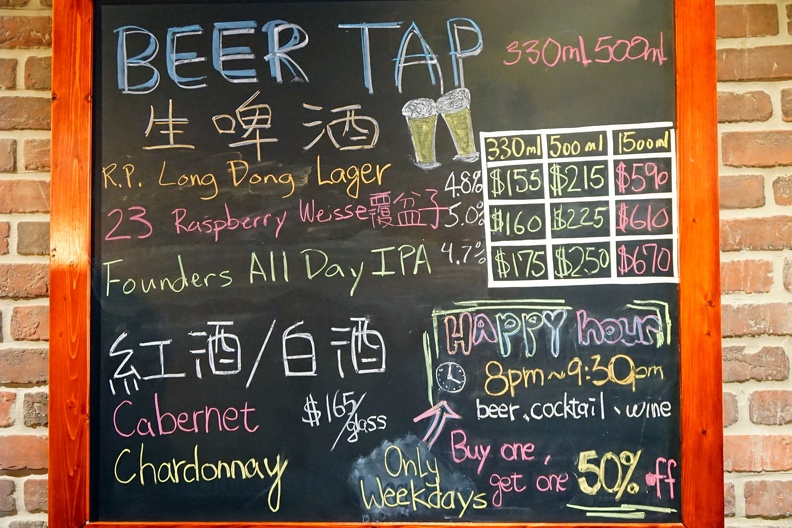 BEER TAP 330ml 500ml
生啤酒
330ml 500ml 1500ml
R.P. Long Dong Lager 4.8% $155 $215 $590
23 Raspberry Weisse覆盆子 5.0% $160 $225 $610
Founders All Day IPA 4.7% $175 $250 $670
紅酒/白酒
Cabernet $165/glass
Chardonnay
HAPPY hour
8pm~9:30pm
beer、cocktail、wine
Buy one,
get one 50% off
Only
Weekdays